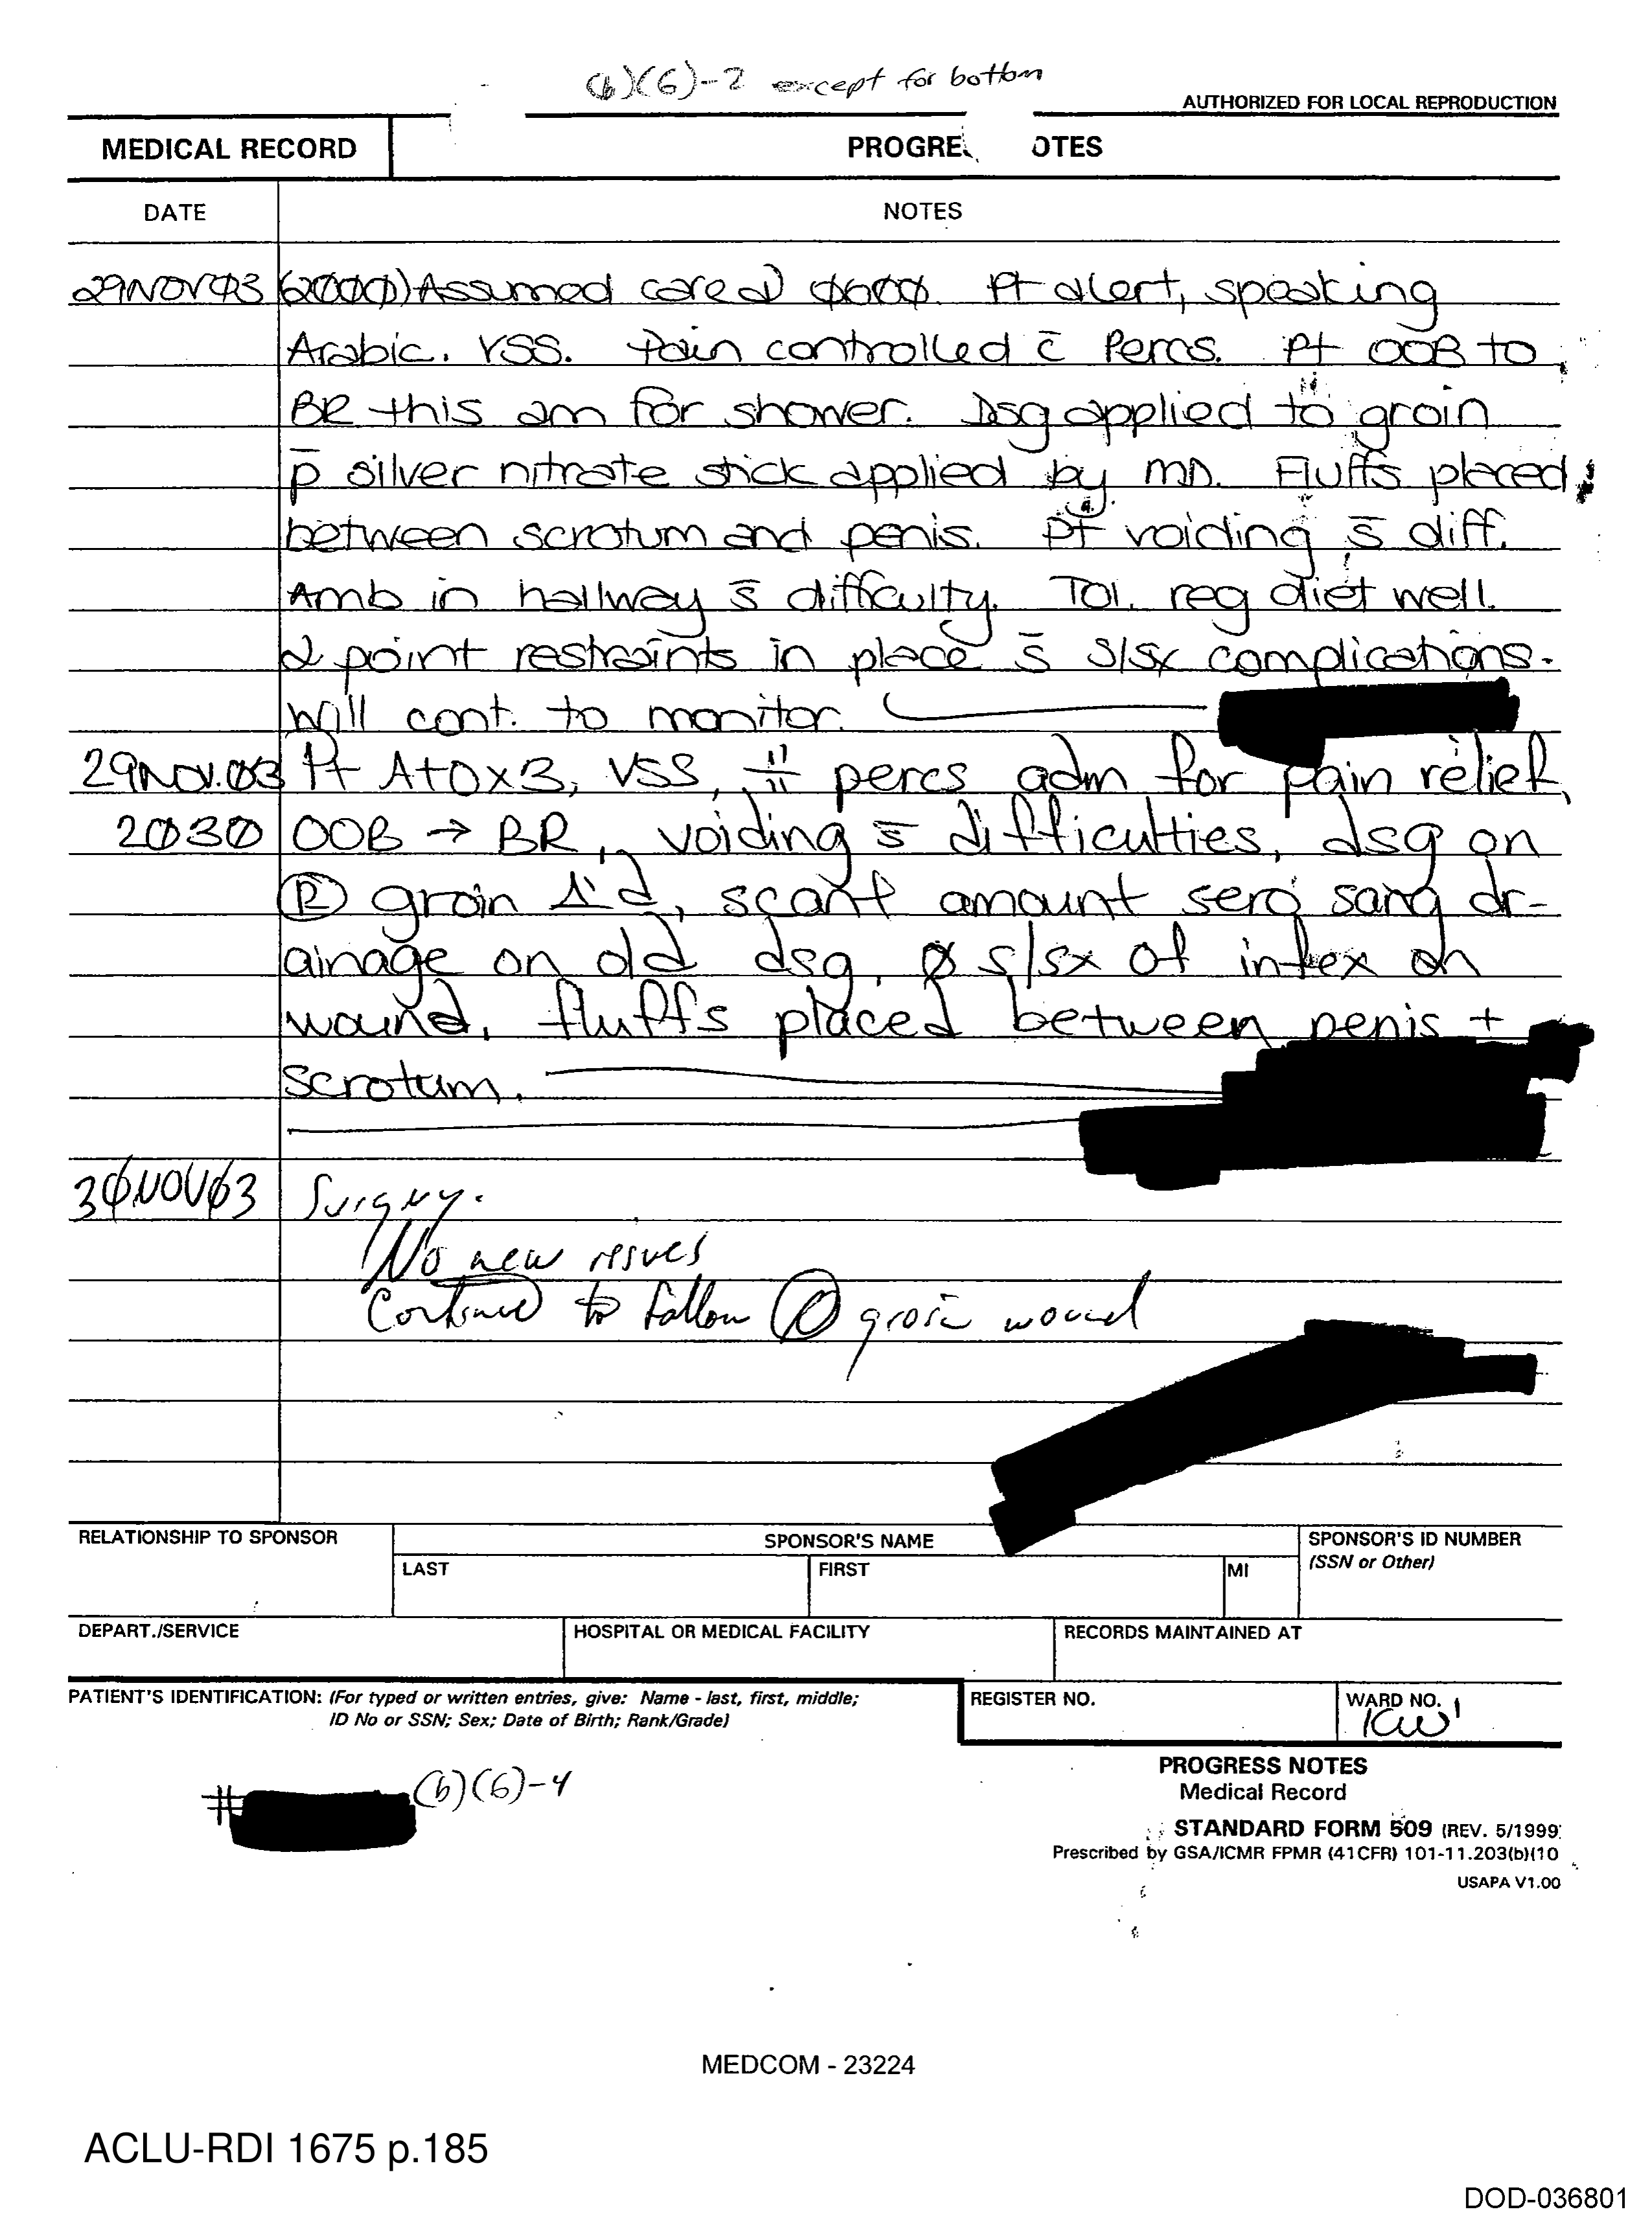 (b)(6)-2 except for bottom
AUTHORIZED FOR LOCAL REPRODUCTION
MEDICAL RECORD
PROGRE OTES
DATE
NOTES
29NOV03 (2000) Assumed care @ 0600. Pt alert, speaking
Arabic. VSS. Pain controlled c̄ Percs. Pt OOB to
BR this am for shower. Dsg applied to groin
p̄ silver nitrate stick applied by MD. Fluffs placed
between scrotum and penis. Pt voiding s̄ diff.
Amb in hallway s̄ difficulty. Tol. reg diet well.
2 point restraints in place s̄ s/sx complications.
Will cont. to monitor.
29NOV.03 Pt A+Ox3, VSS, ii percs adm for pain relief,
2030 OOB → BR, voiding s̄ difficulties, dsg on
Ⓡ groin Δ'd, scant amount sero sang dr-
ainage on old dsg, ø s/sx of infex on
wound, fluffs placed between penis +
scrotum.
30NOV03 Surgery.
No new issues
Continue to follow Ⓡ groin wound
RELATIONSHIP TO SPONSOR
SPONSOR'S NAME
SPONSOR'S ID NUMBER
(SSN or Other)
LAST
FIRST
MI
DEPART./SERVICE
HOSPITAL OR MEDICAL FACILITY
RECORDS MAINTAINED AT
PATIENT'S IDENTIFICATION: (For typed or written entries, give: Name - last, first, middle;
ID No or SSN; Sex; Date of Birth; Rank/Grade)
REGISTER NO.
WARD NO.
ICW1
# (b)(6)-4
PROGRESS NOTES
Medical Record
STANDARD FORM 509 (REV. 5/1999
Prescribed by GSA/ICMR FPMR (41CFR) 101-11.203(b)(10
USAPA V1.00
MEDCOM - 23224
ACLU-RDI 1675 p.185
DOD-036801